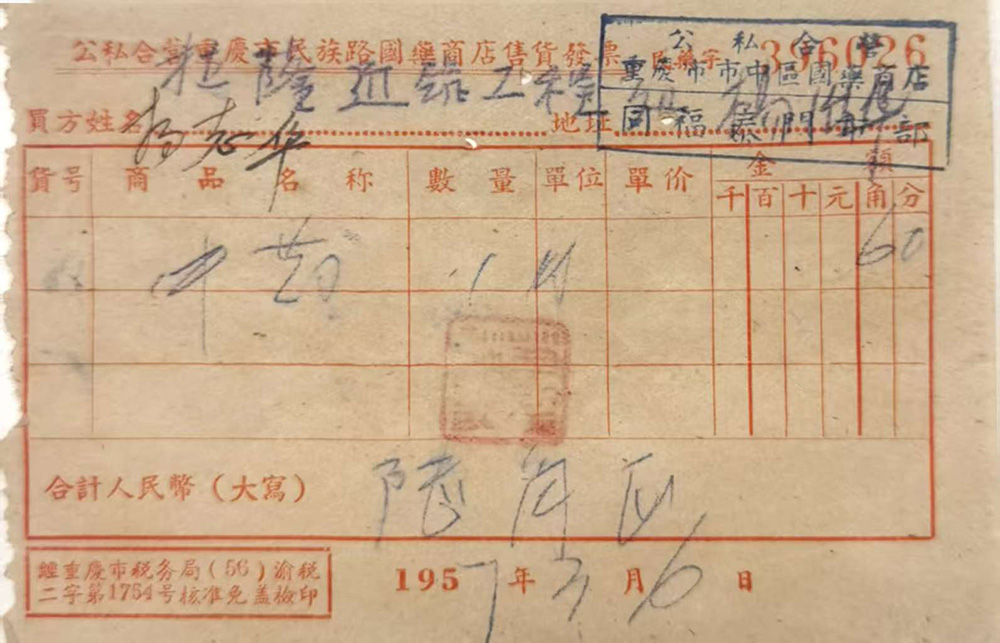 公私合营重慶市民族路國藥商店售貨發票 民藥字 396026
公私合營
重慶市市中區國藥商店
同福泰門市部
買方姓名 楊志华 地址
貨号 商品名称 數量 單位 單价 金額
千 百 十 元 角 分
中艹 1 付 60
合計人民幣（大寫） 陆角正
經重慶市税务局（56）渝税
二字第1754号核准免盖檢印
1957年3月6日